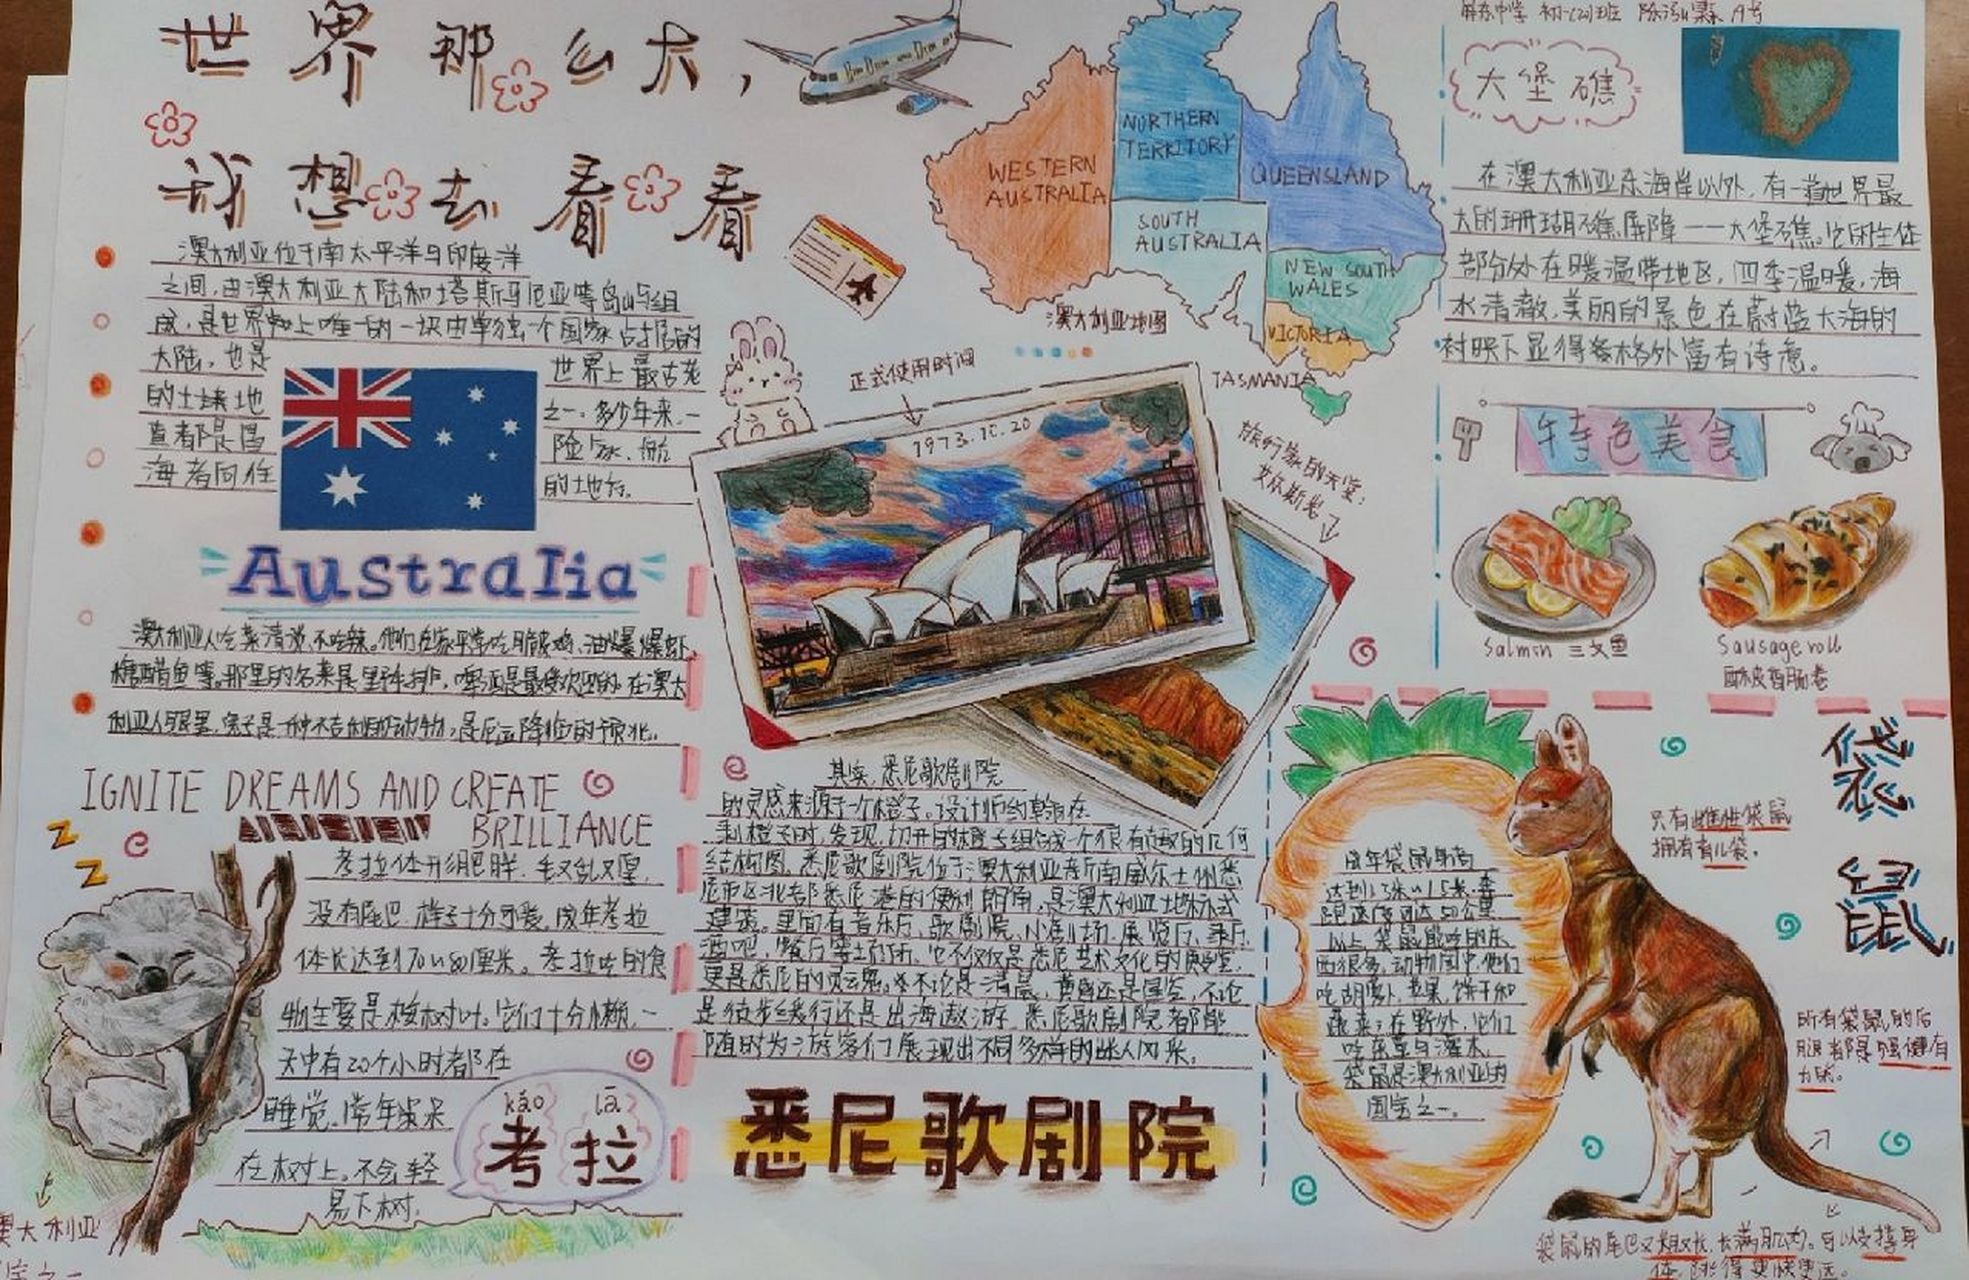 世界那么大，
我想去看看
澳大利亚位于南太平洋与印度洋
之间,由澳大利亚大陆和塔斯马尼亚等岛屿组
成,是世界上唯一的一块由单独一个国家占据的
大陆，也是 世界上最古老
的土壤地 之一。多少年来,一
直都是冒 险与水、航
海者向往 的地方。
Australia
澳大利亚人吃菜清淡、不吃辣。他们在家平常吃脆皮鸡、油爆虾、
糖醋鱼等。那里的名菜是野牛排,啤酒是最受欢迎的。在澳大
利亚人眼里,兔子是一种不吉利的动物,是厄运降临的预兆。
IGNITE DREAMS AND CREATE
BRILLIANCE
Z
Z
考拉体形肥胖,毛又乱又厚,
没有尾巴,样子十分可爱,成年考拉
体长达到70~80厘米。考拉吃的食
物主要是桉树叶。它们十分懒,一
天中有20个小时都在
睡觉,常年呆呆
在树上。不会轻
易下树.
kǎo lā
考拉
澳大利亚
BonDianDian
WESTERN
AUSTRALIA
NORTHERN
TERRITORY
QUEENSLAND
SOUTH
AUSTRALIA
NEW SOUTH
WALES
VICTORIA
TASMANIA
澳大利亚地图
正式使用时间
1973.10.20
旅行家的天堂:
艾尔斯岩
其实,悉尼歌剧院
的灵感来源于一个橙子。设计师约翰在
剥橙子时,发现,切开的橙子组合成一个很有趣的几何
结构图。悉尼歌剧院位于澳大利亚新南威尔士州悉
尼市区北部悉尼港的便利朗角,是澳大利亚地标式
建筑。里面有音乐厅、歌剧院、小剧场、展览厅、
酒吧、餐厅等场所。它不仅仅是悉尼艺术文化的殿堂,
更是悉尼的灵魂。不论是清晨,黄昏还是星空,不论
是徒步缓行还是出海遨游,悉尼歌剧院都能
随时为游客们展现出不同多样的迷人风采。
悉尼歌剧院
屏东中学 初一(2)班
大堡礁
在澳大利亚东海岸以外,有一道世界最
大的珊瑚礁屏障——大堡礁。它的主体
部分处在暖温带地区,四季温暖,海
水清澈,美丽的景色在蔚蓝大海的
衬映下显得格外富有诗意。
特色美食
Salmon 三文鱼
Sausage roll
酥皮香肠卷
袋鼠
只有雌性袋鼠
拥有育儿袋。
成年袋鼠身高
达到1.3米~1.5米,奔
跑速度可达50公里
以上,袋鼠能吃的东
西很多,动物园中,他们
吃胡萝卜、苹果、饼干和
蔬菜;在野外,它们
吃杂草与灌木。
袋鼠是澳大利亚的
国宝之一。
所有袋鼠的后
腿都是强健有
力的。
袋鼠的尾巴又粗又长,长满肌肉。可以支撑身
体,跳得更快更远。